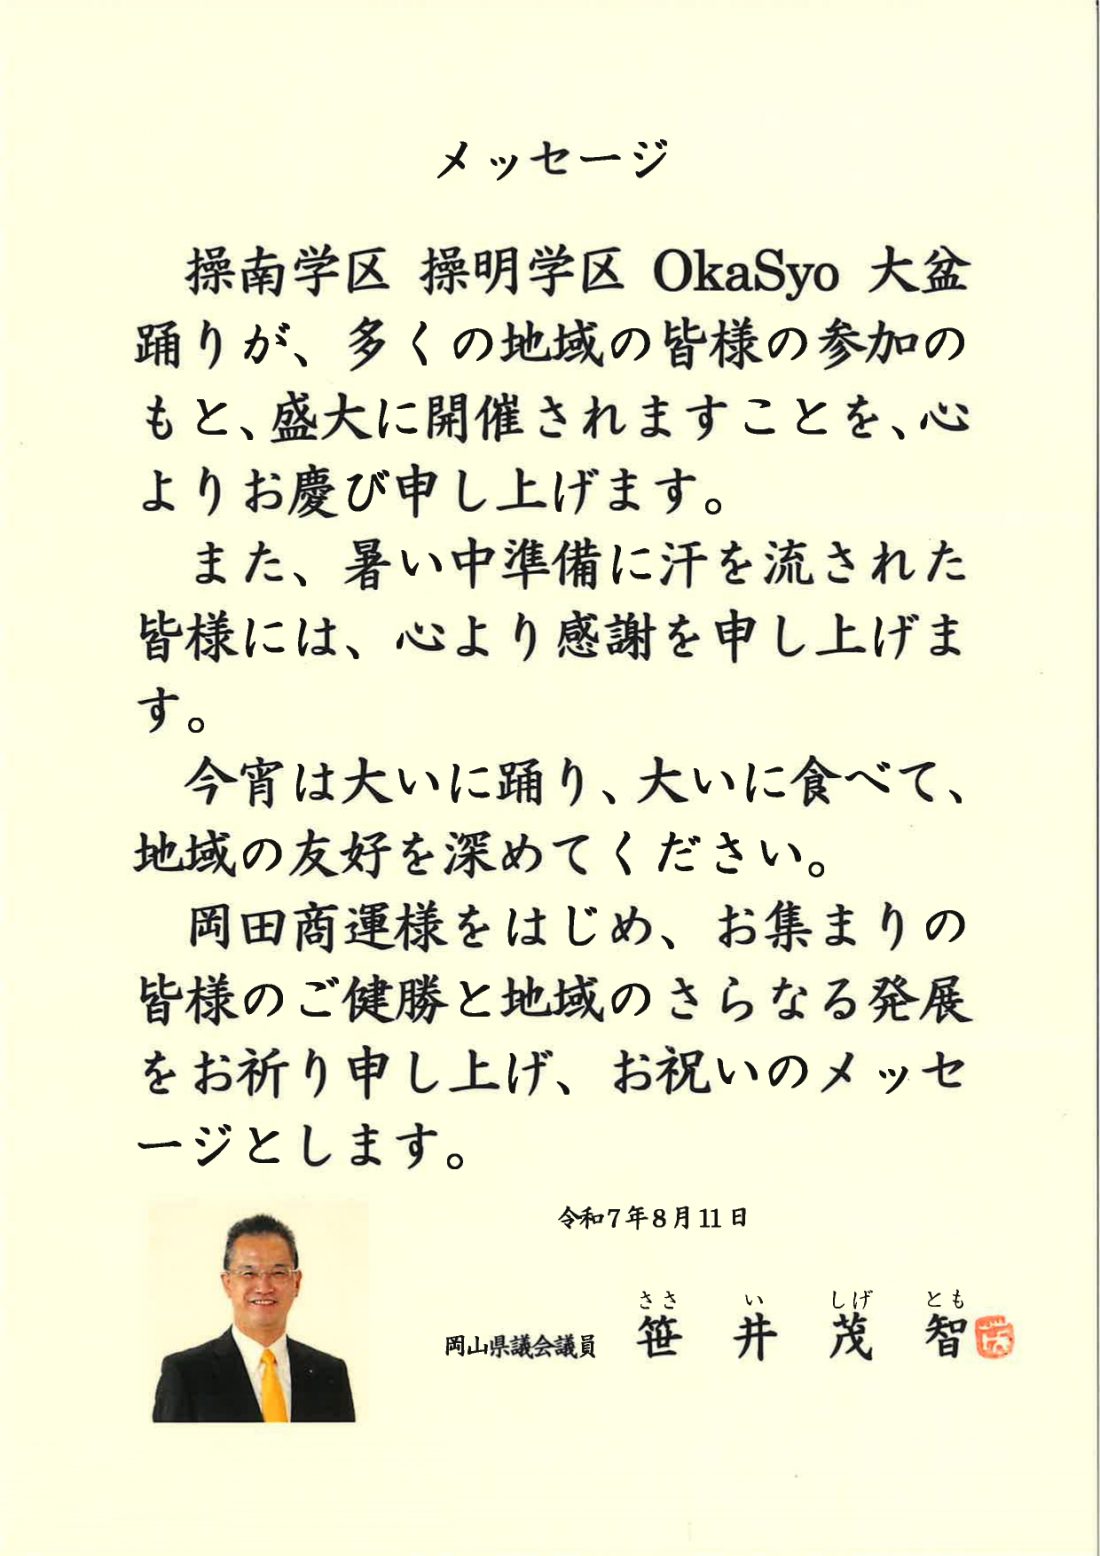 メッセージ
操南学区 操明学区 OkaSyo 大盆
踊りが、多くの地域の皆様の参加の
もと、盛大に開催されますことを、心
よりお慶び申し上げます。
また、暑い中準備に汗を流された
皆様には、心より感謝を申し上げま
す。
今宵は大いに踊り、大いに食べて、
地域の友好を深めてください。
岡田商運様をはじめ、お集まりの
皆様のご健勝と地域のさらなる発展
をお祈り申し上げ、お祝いのメッセ
ージとします。
令和7年8月11日
ささ い しげ とも
岡山県議会議員 笹井茂智